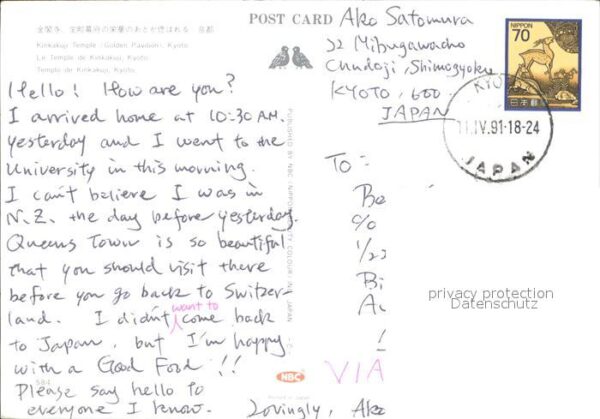 金閣寺、室町幕府の栄華のあとが偲ばれる 京都
Kinkakuji Temple (Golden Pavilion), Kyoto
Le Temple de Kinkakuji, Kyoto
Templo de Kinkakuji, Kyoto
POST CARD
Hello! How are you?
I arrived home at 10:30 A.M.
yesterday and I went to the
University in this morning.
I can't believe I was in
N.Z. the day before yesterday.
Queens Town is so beautiful
that you should visit there
before you go back to Switzer-
land. I didn't want to come back
to Japan, but I'm happy
with a Good Food!!
Please say hello to
everyone I know.
Lovingly, Ako
584
PUBLISHED BY NBC
IN JAPAN
NBC
Printed in Japan
Ako Satomura
32 Mibugawacho
Chudoji, Shimogyoku
KYOTO, 600
JAPAN
NIPPON
70
日本郵便
KYO
11.IV.91-18-24
JAPAN
To:
Be
c/o
1/23
Bi
Au
VIA
privacy protection
Datenschutz